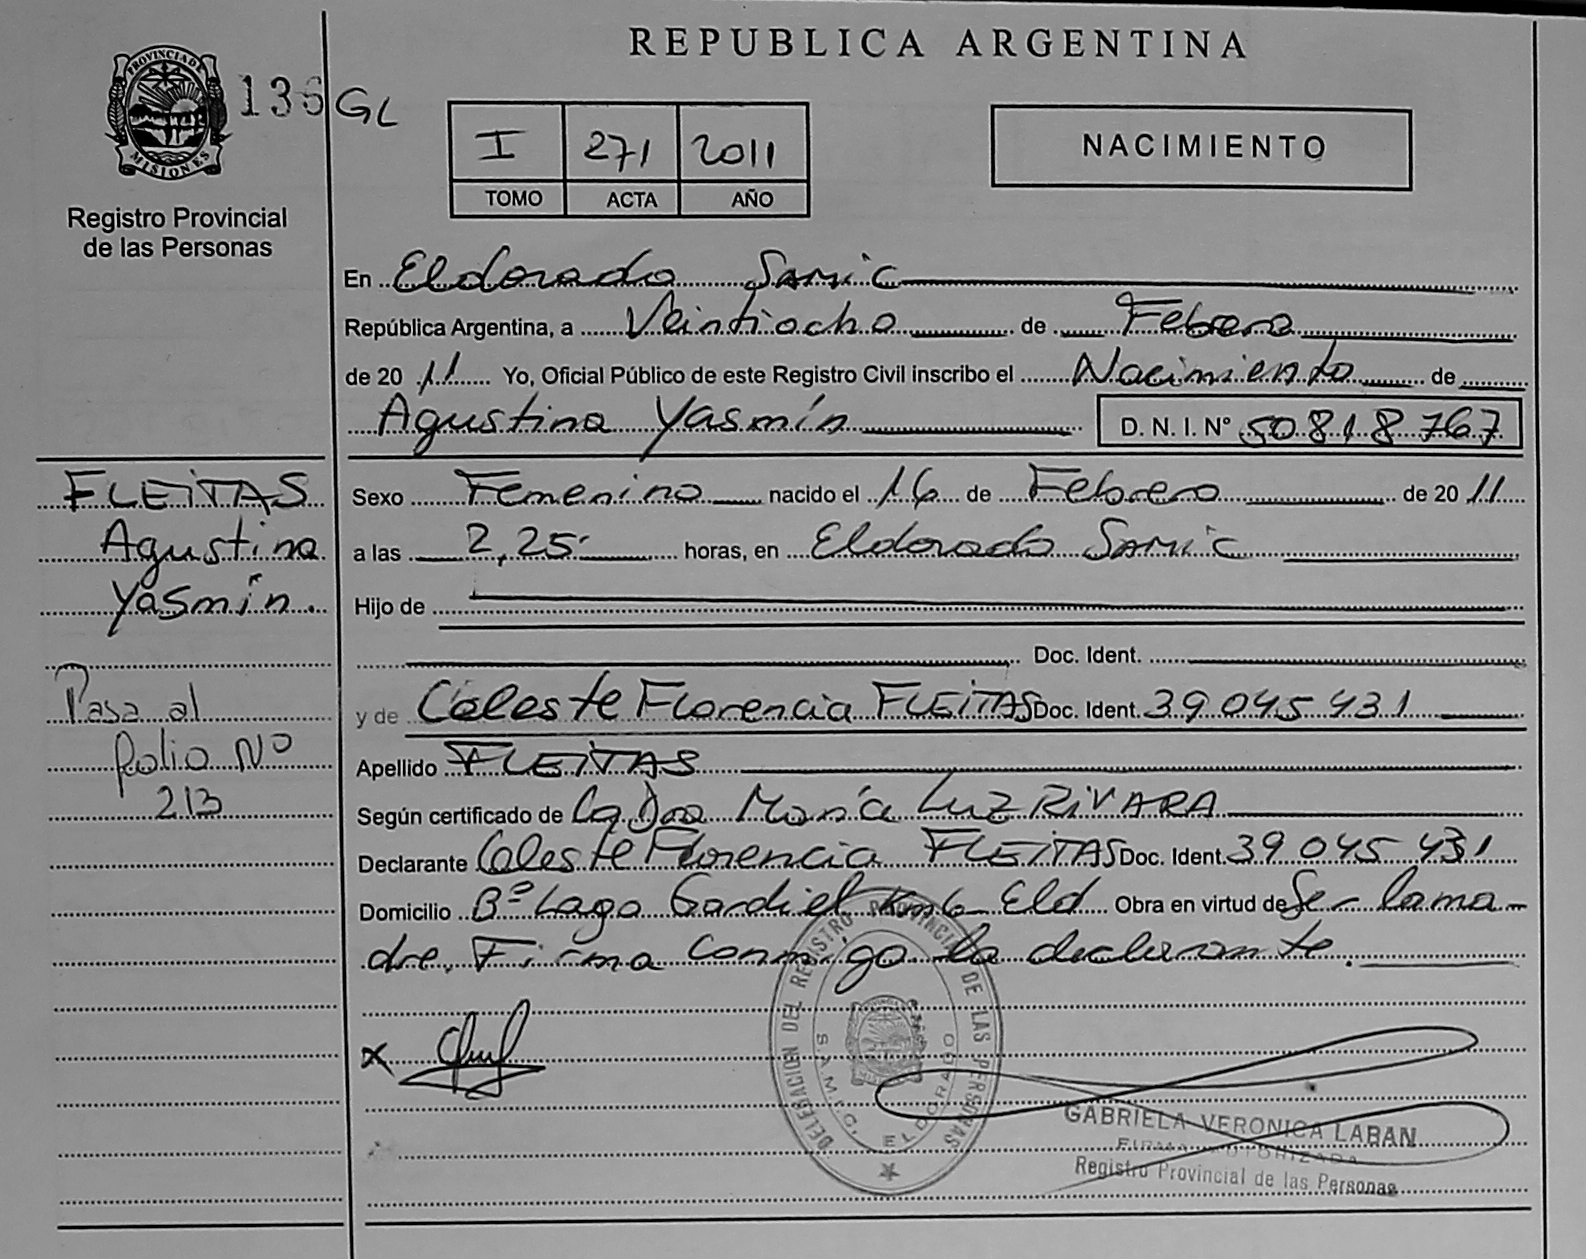 REPUBLICA ARGENTINA
PROVINCIA DE
MISIONES
136 GL
Registro Provincial
de las Personas
I 271 2011
TOMO ACTA AÑO
NACIMIENTO
En Eldorado Samic
República Argentina, a Veintiocho de Febrero
de 20 11 Yo, Oficial Público de este Registro Civil inscribo el Nacimiento de
Agustina Yasmín D. N. I. Nº 50.818.767
FLEITAS
Agustina
Yasmín.
Pasa al
folio Nº
213
Sexo Femenino nacido el 16 de Febrero de 20 11
a las 2,25 horas, en Eldorado Samic
Hijo de
Doc. Ident.
y de Celeste Florencia FLEITAS Doc. Ident. 39 045 431
Apellido FLEITAS
Según certificado de la Dra María Luz RIVARA
Declarante Celeste Florencia FLEITAS Doc. Ident. 39 045 431
Domicilio Bº Lago Gardiel km 6 Eld Obra en virtud de Ser la ma-
dre. Firma conmigo la declarante.
x
DELEGACION DEL REGISTRO PROVINCIAL DE LAS PERSONAS
S.A.M.I.C. ELDORADO
GABRIELA VERONICA LABAN
FIRMA AUTORIZADA
Registro Provincial de las Personas